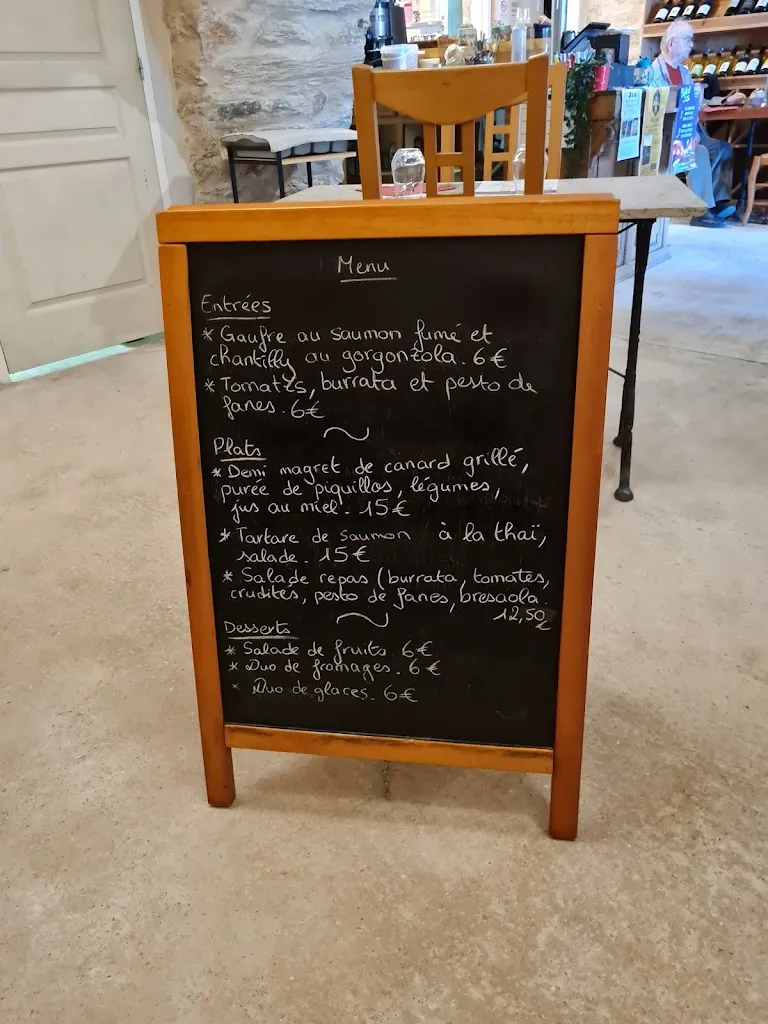 Menu
Entrées
* Gaufre au saumon fumé et
chantilly au gorgonzola. 6€
* Tomates, burrata et pesto de
fanes. 6€
Plats
* Demi magret de canard grillé,
purée de piquillos, légumes,
jus au miel. 15€
* Tartare de saumon à la thaï,
salade. 15€
* Salade repas (burrata, tomates,
crudités, pesto de fanes, bresaola.
12,50
€
Desserts
* Salade de fruits. 6€
* Duo de fromages. 6€
* Duo de glaces. 6€